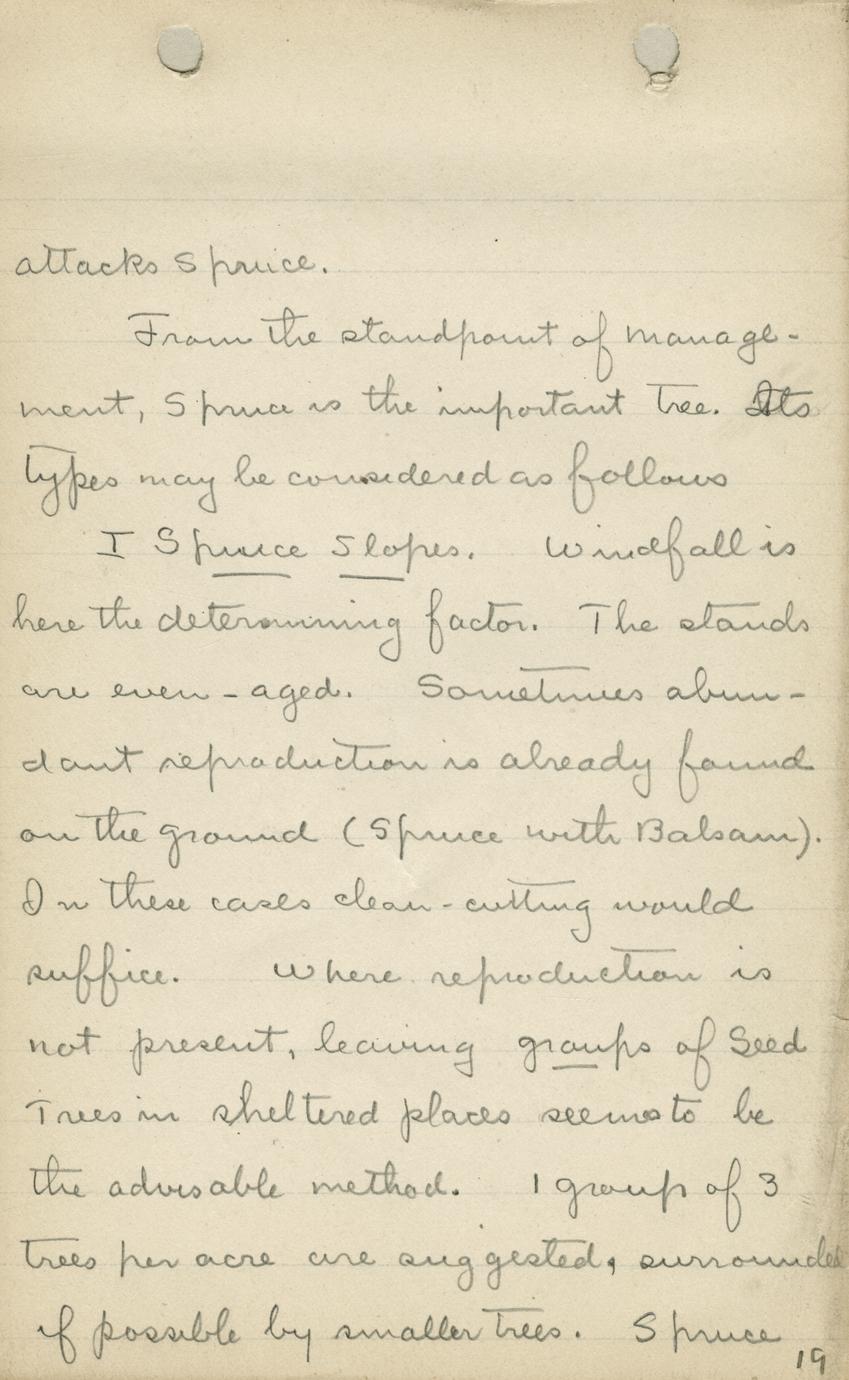 attacks Spruce.
From the standpoint of manage-
ment, Spruce is the important tree. Its
types may be considered as follows
I Spruce Slopes. Windfall is
here the determining factor. The stands
are even-aged. Sometimes abun-
dant reproduction is already found
on the ground (Spruce with Balsam).
In these cases clean-cutting would
suffice. Where reproduction is
not present, leaving groups of Seed
Trees in sheltered places seems to be
the advisable method. 1 group of 3
trees per acre are suggested, surrounded
if possible by smaller trees. Spruce
19